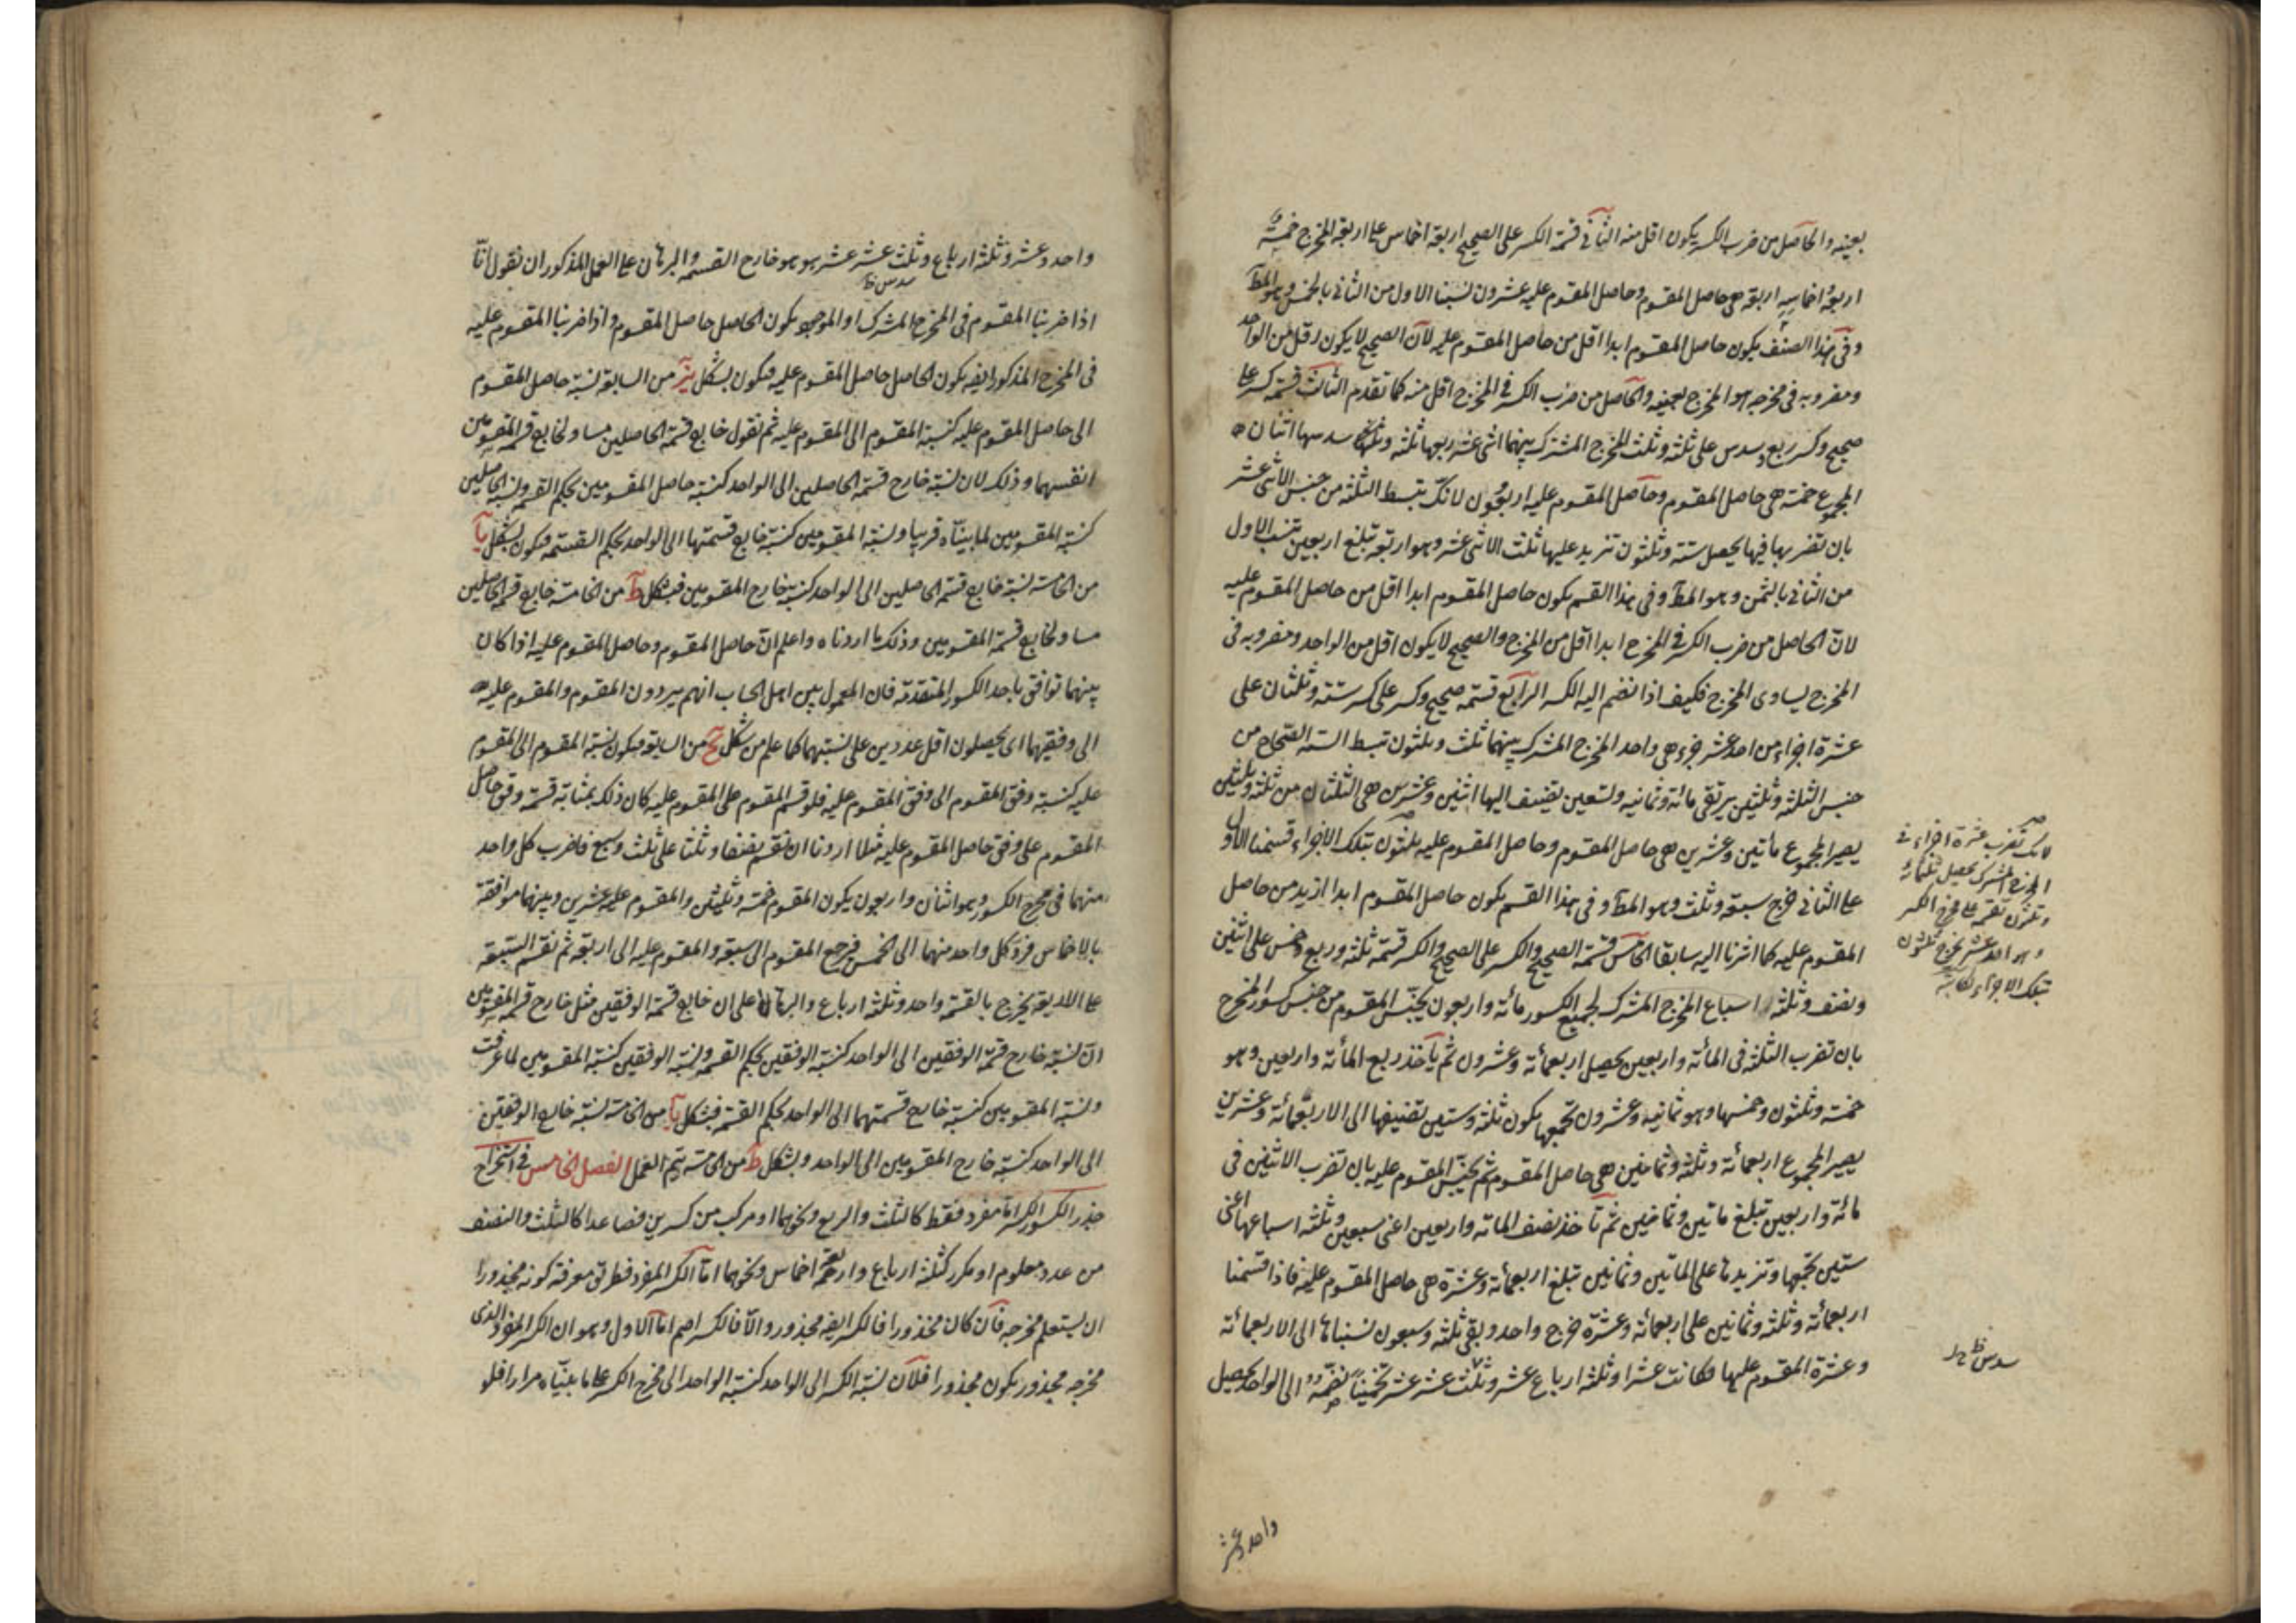 بعينه والحاصل من ضرب الكسر يكون اقل منه الثاني قسمة الكسر على الصحيح اربعة اخماس على اربعة المخرج خمسة
اربعة اخماسه اربعة هي حاصل المقسوم وحاصل المقسوم عليه عشرون نسبنا الاول من الثاني بالخمس وهو المط
وفي هذا الصنف يكون حاصل المقسوم ابدا اقل من حاصل المقسوم عليه لان الصحيح لا يكون اقل من الواحد
ومضروبه في مخرجه هو المخرج بعينه والحاصل من ضرب الكسر في المخرج اقل منه كما تقدم الثالث قسمة كسر على
صحيح وكسر ربع وسدس على ثلثة وثلث المخرج المشترك بينهما اثنى عشر ربعها ثلثة وسدسها اثنان
المجموع خمسة هي حاصل المقسوم وحاصل المقسوم عليه اربعون لانك تبسط الثلثة من جنس الاثنى عشر
بان تضربها فيها يحصل ستة وثلثون تزيد عليها ثلث الاثنى عشر وهو اربعة تبلغ اربعين تنسب الاول
من الثاني بالثمن وهو المط وفي هذا القسم يكون حاصل المقسوم ابدا اقل من حاصل المقسوم عليه
لان الحاصل من ضرب الكسر في المخرج ابدا اقل من المخرج والصحيح لا يكون اقل من الواحد ومضروبه في
المخرج يساوي المخرج فكيف اذا انضم اليه الكسر الرابع قسمة صحيح وكسر على كسر ستة وثلثان على
عشرة اجزاء من احد عشر جزء هي واحد المخرج المشترك بينهما ثلث وثلثون تبسط الستة الصحاح من
جنس الثلثة وثلثين يرتقي مائة وثمانية وتسعين تضيف اليها اثنين وعشرين هي الثلثان من ثلثة وثلثين
يصير المجموع مأتين وعشرين هي حاصل المقسوم وحاصل المقسوم عليه ثلثون بتلك الاجزاء قسمنا الاول
على الثاني خرج سبعة وثلث وهو المط وفي هذا القسم يكون حاصل المقسوم ابدا ازيد من حاصل
المقسوم عليه كما اشرنا اليه سابقا الخامس قسمة الصحيح والكسر على الصحيح والكسر قسمة ثلثة وربع وخمس على اثنين
ونصف وثلثة اسباع المخرج المشترك لجميع الكسور مائة واربعون يجنس المقسوم من جنس كسور المخرج
بان تضرب الثلثة في المأئة واربعين يحصل اربعمائة وعشرون ثم ياخذ ربع المأئة واربعين وهو
خمسة وثلثون وخمسها وهو ثمانية وعشرون تجمعها يكون ثلثة وستين تضيفها الى الاربعمائة وعشرين
يصير المجموع اربعمائة وثلثة وثمانين هي حاصل المقسوم ثم يجنس المقسوم عليه بان تضرب الاثنين في
مائة واربعين تبلغ مائتين وثمانين ثم تأخذ نصف المائة واربعين اعني سبعين وثلثة اسباعها اعني
ستين تجمعها وتزيدها على المائتين وثمانين تبلغ اربعمائة وعشرة هي حاصل المقسوم عليه فاذا قسمنا
اربعمائة وثلثة وثمانين على اربعمائة وعشرة خرج واحد وبقى ثلثة وسبعون نسبناها الى الاربعمائة
وعشرة المقسوم عليها فكانت عشرا وثلثة ارباع عشر وثلث عشر عشر تخمينا نضمه الى الواحد يحصل
لانك تضرب عشرة اجزاء في
المخرج المشترك يحصل ثلثمائة
وثلثون تقسم على مخرج الكسر
وهو احد عشر يخرج ثلثون
بتلك الاجزاء
سدس
واحد وعشر
واحد وعشر وثلثة ارباع وثلث عشر عشر هو هو خارج القسمة والبرهان على العمل المذكور ان نقول انا
سدس
اذا ضربنا المقسوم في المخرج المشترك او الموجود يكون الحاصل حاصل المقسوم واذا ضربنا المقسوم عليه
في المخرج المذكور ايضه يكون الحاصل حاصل المقسوم عليه فيكون بشكل يز من السابعة نسبة حاصل المقسوم
الى حاصل المقسوم عليه كنسبة المقسوم الى المقسوم عليه ثم نقول خارج قسمة الحاصلين مساو لخارج قسمة المقسومين
انفسهما وذلك لان نسبة خارج قسمة الحاصلين الى الواحد كنسبة حاصل المقسومين بحكم القسمة ونسبة الحاصلين
كنسبة المقسومين لما بيناه قريبا ونسبة المقسومين كنسبة خارج قسمتهما الى الواحد بحكم القسمة فيكون بشكل يا
من الخامسة نسبة خارج قسمة الحاصلين الى الواحد كنسبة خارج المقسومين فبشكل ط من الخامسة خارج قسمة الحاصلين
مساو لخارج قسمة المقسومين وذلك ما اردناه واعلم ان حاصل المقسوم وحاصل المقسوم عليه اذا كان
بينهما توافق باحد الكسور المتقدمة فان المعمول بين اهل الحساب انهم يردون المقسوم والمقسوم عليه
الى وفقيهما اى يحصلون اقل عددين على نسبتهما كما علم من شكل لح من السابعة فيكون نسبة المقسوم الى المقسوم
عليه كنسبة وفق المقسوم الى وفق المقسوم عليه فلو قسم المقسوم على المقسوم عليه كان ذلك بمثابة قسمة وفق حاصل
المقسوم على وفق حاصل المقسوم عليه مثلا اردنا ان نقسم نصفا وثلثا على ثلث وسبع فاضرب كل واحد
منهما في مخرج الكسور وهو اثنان واربعون يكون المقسوم خمسة وثلثين والمقسوم عليه عشرين وبينهما موافقة
بالاخماس فرد كل واحد منهما الى الخمس فرجع المقسوم الى سبعة والمقسوم عليه الى اربعة ثم نقسم السبعة
على الاربعة يخرج بالقسمة واحد وثلثة ارباع والبرهان على ان خارج قسمة الوفقين مثل خارج قسمة المقسومين
ان نسبة خارج قسمة الوفقين الى الواحد كنسبة الوفقين بحكم القسمة ونسبة الوفقين كنسبة المقسومين لما عرفت
ونسبة المقسومين كنسبة خارج قسمتهما الى الواحد بحكم القسمة فبشكل يا من الخامسة نسبة خارج الوفقين
الى الواحد كنسبة خارج المقسومين الى الواحد وبشكل ط من الخامسة يتم العمل الفصل الخامس في استخراج
جذر الكسور الكسر اما مفرد فقط كالثلث والربع ونحوهما او مركب من كسرين فصاعدا كالثلث والنصف
من عدد معلوم او مكرر كثلثة ارباع واربعة اخماس ونحوهما اما الكسر المفرد فطريق معرفة كونه مجذورا
ان يستعلم مخرجه فان كان مجذورا فالكسر ايضه مجذور والا فالكسر اصم اما الاول وهو ان الكسر المفرد الذى
مخرجه مجذور يكون مجذورا فلان نسبة الكسر الى الواحد كنسبة الواحد الى مخرج الكسر على ما بيناه مرارا فلو